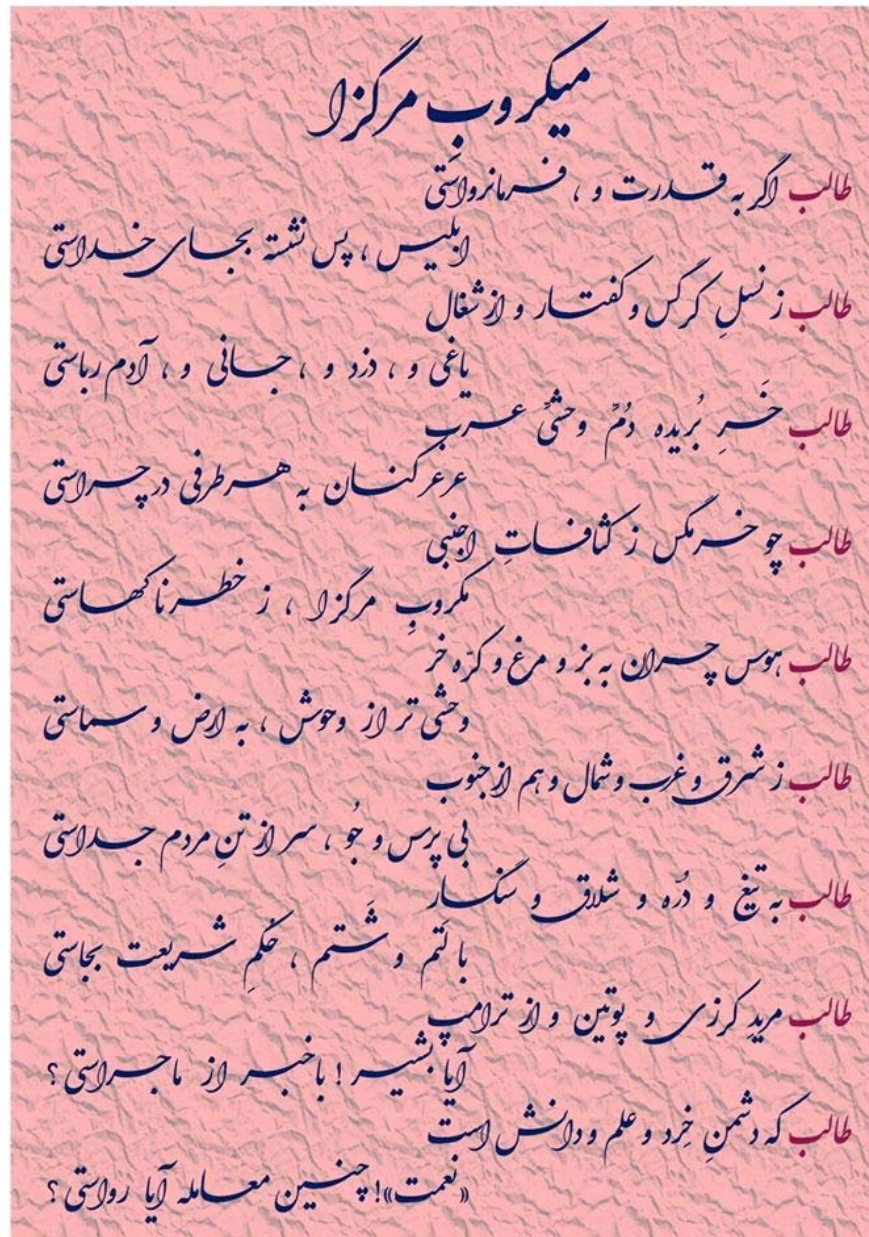 میکروبِ مرگزا
طالب اگر به قدرت و ، فرمانرواستی
ابلیس ، پس نشسته بجای خداستی
طالب ز نسلِ کرگس و کفتار و از شغال
یاغی و ، دزد و ، جانی و ، آدم رباستی
طالب خَرِ بُریده دُمِّ وحشیِّ عرب
عرعرکنان به هر طرفی در چراستی
طالب چو خرمگس ز کثافاتِ اجنبی
مکروبِ مرگزا ، ز خطرناکهاستی
طالب هوس چران به بز و مرغ و کرّه خر
وحشی تر از وحوش ، به ارض و سماستی
طالب ز شرق و غرب و شمال و هم از جنوب
بی پرس و جُو ، سر از تنِ مردم جداستی
طالب به تیغ و دُرّه و شلاق و سنگسار
با لَتم و شَتم ، حُکمِ شریعت بجاستی
طالب مریدِ کرزی و پوتین و از ترامپ
آیا بشیر ! باخبر از ماجراستی ؟
طالب که دشمنِ خِرد و علم و دانش است
«نعمت»! چنین معامله آیا رواستی ؟